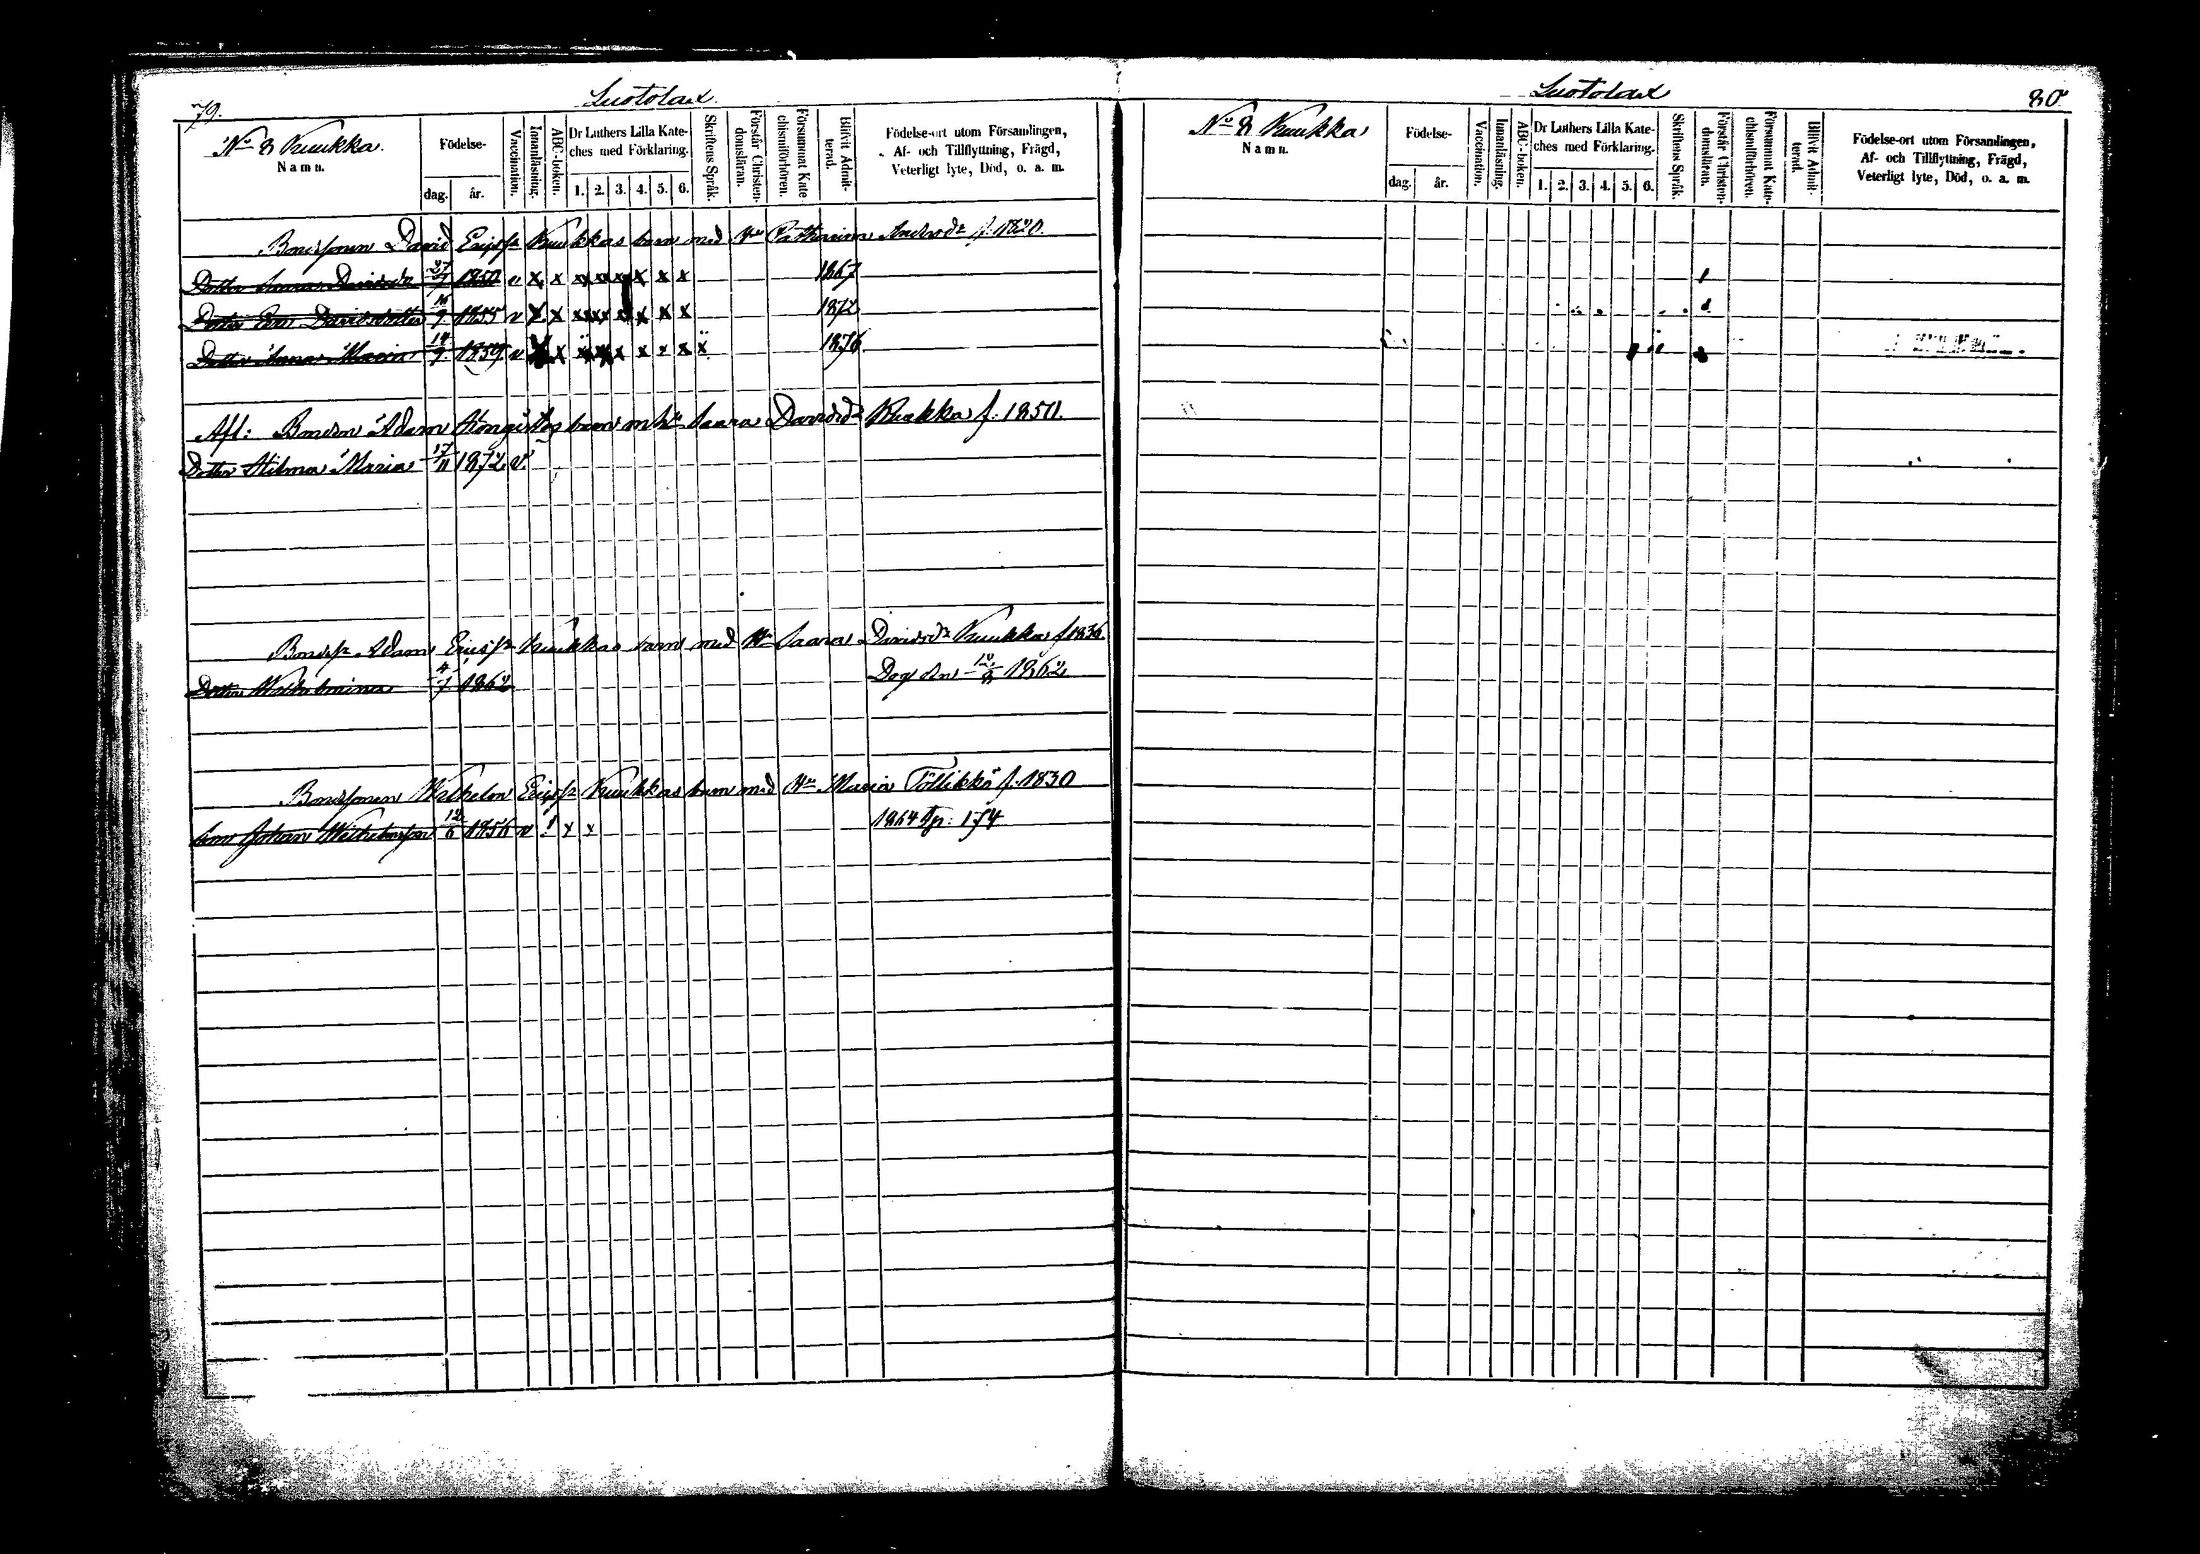 79.
Luotolax
No 8 Kuukka.
Namn.
Födelse-
dag.
år.
Vaccination.
Innanläsning.
ABC-boken.
Dr Luthers Lilla Kate-
ches med Förklaring.
1. 2. 3. 4. 5. 6.
Skriftens Språk.
Förstår Christen-
domsläran.
Försummat Kate
chismiförhören.
Blifvit Admit-
terad.
Födelse-ort utom Församlingen,
Af- och Tillflyttning, Frägd,
Veterligt lyte, Död, o. a. m.
Bondsonen David Ericss: Kuukkas barn med Hu Catharina Andersdr f. 1820.
Dotter Davidsdr 27/7 1850 v x x x x x x x x 1867
Dotter Eva Davidsdotter 16/9 1855 v x x x x x x x x 1872
Dotter Anna Maria 14/9 1859 v x x x x x x x x x 1876
Afl: Bondsn Adam Kongistos barn m hu Saara Davidsdr Kuukka f. 1850.
Dotter Hilma Maria 17/11 1872 v.
Bondes: Adam Ericss: Kuukkas barn med Hu Saara Davidsdr Kuukka f 1836
Dotter Wilhelmina 4/7 1862 Dog den 12/8 1862
Bondsonen Wilhelm Ericss: Kuukkas barn med Hu Maria Töllikkö f. 1830
Son Johan Wilhelmsson 12/6 1856 v x x 1864 Tp: 174
Luotolax
80.
No 8 Kuukka
Namn.
Födelse-
dag.
år.
Vaccination.
Innanläsning.
ABC-boken.
Dr Luthers Lilla Kate-
ches med Förklaring.
1. 2. 3. 4. 5. 6.
Skriftens Språk.
Förstår Christen-
domsläran.
Försummat Kate-
chismiförhören.
Blifvit Admit-
terad.
Födelse-ort utom Församlingen,
Af- och Tillflyttning, Frägd,
Veterligt lyte, Död, o. a. m.